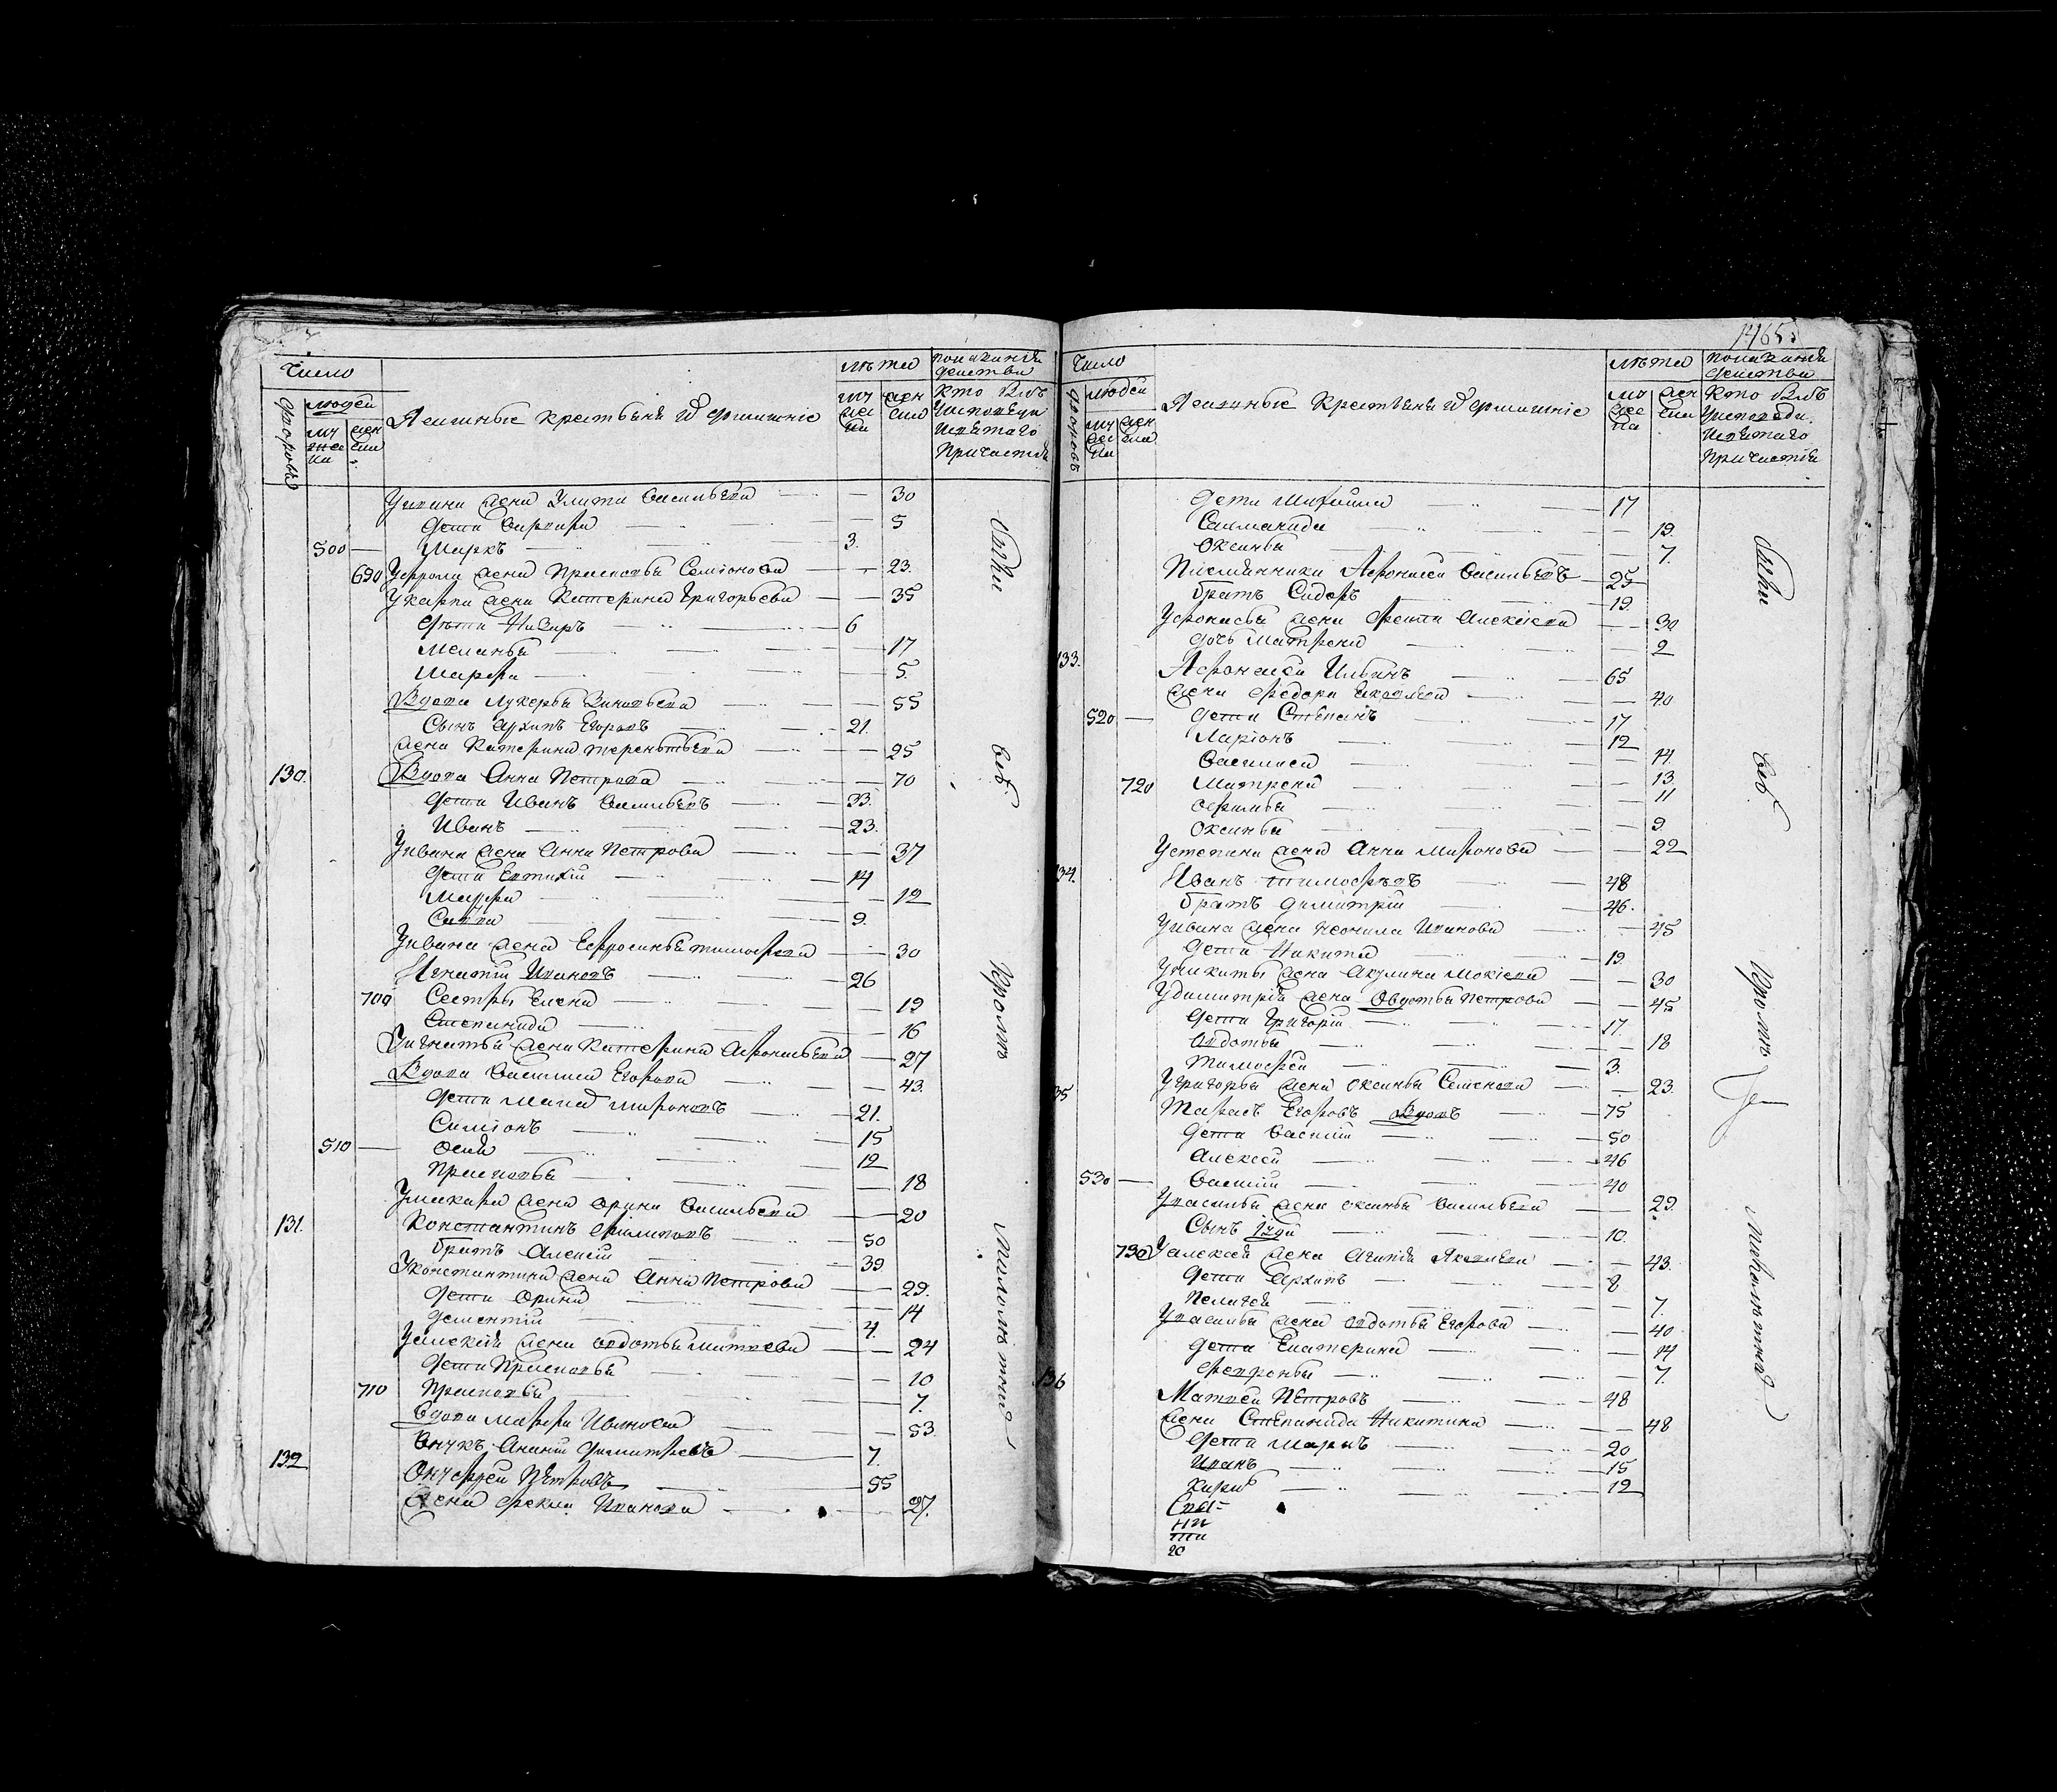 Число
дворовъ
людей
муж ска
жен ска
Ясашные крестьяне и домашние
лѣта
муж ска
жен ска
показания действа
кто былъ
у исповеди
и святаго
причастия
У жена Улита Васильева 30
дети 5
500 Маркъ 3.
690 У жена Прасковья Семионова 23.
У Карпа жена Катерина Григорьева 35
дѣти Назаръ 6
Меланья 17
Марфа 5.
Вдова Лукерья Зиновьева 55
Сынъ Архипъ Егоровъ 21.
жена Катерина Терентьева 25
130. Вдова Анна Петрова 70
дети Иванъ Васильевъ 33.
Иванъ 23.
У Ивана жена Анна Петрова 37
дети Евтихий 14
Марфа 12
Савва 9.
У Ивана жена Ефросинья Тимофеева 30
Игнатий Ивановъ 26
700 Сестры Елена 19
Степанида 16
У Игнатья жена Катерина Афонасьева 27
Вдова Василиса Егорова 43.
дети Мироновъ 21.
Симионъ 15
510 Осия 12
Прасковья 18
У жена Орина Васильева 20
131. Константинъ Филиповъ 50
братъ Алексий 39
У Константина жена Анна Петрова 29.
дети Орина 14
Дементий 4.
У Алексия жена Авдотья Матвеева 24
дети Прасковья 10
710 Прасковья 7.
Вдова Марфа Иванова 53.
внукъ Ананий Димитревъ 7.
132 Петровъ 55
жена Фекла Иванова 27.
были
всѣ
1465
Число
дворовъ
людей
муж ска
жен ска
Ясашные крестьяне и домашние
лѣта
муж ска
жен ска
показания действа
кто былъ
у исповеди
и святаго
причастия
дети Михайла 17
Саламанида 19.
Оксинья 7.
Племянники Афонасей Васильевъ 25
братъ Сидоръ 19.
У Афонасья жена Алексеева 30
дочь Матрена 2
133. Афонасей Ильинъ 65
жена Федора Яковлева 40
520 дети Степанъ 17
Ларионъ 12
Василиса 14.
720 Матрена 13.
11
Оксинья 9.
У Степана жена Анна Миронова 22
134. Иванъ Тимофеевъ 48
братъ Димитрий 46.
У Ивана жена Неонила Иванова 45
дети Никита 19.
У Никиты жена Акулина Мокиева 30
У Димитрия жена Овдотья Петрова 45
дети Григорий 17.
Авдотья 18
Тимофей 3.
У Григорья жена Оксинья Семенова 23.
135 Тарасъ Егоровъ вдовъ 75
дети Василий 50
Алексей 46
530 Василий 40
У Василья жена Оксинья Васильева 29.
Сынъ Iуда 10.
730 У Алексея жена Агапия Яковлева 43.
дети Архипъ 8
Пелагея 7.
У Василья жена Авдотья Егорова 40
дети Екатерина 14
Февронья 7.
136 Матвей Петровъ 48
жена Степанида Никитина 48
дети Маркъ 20
Иванъ 15
12
были
всѣ
кромѣ
малолѣтныхъ